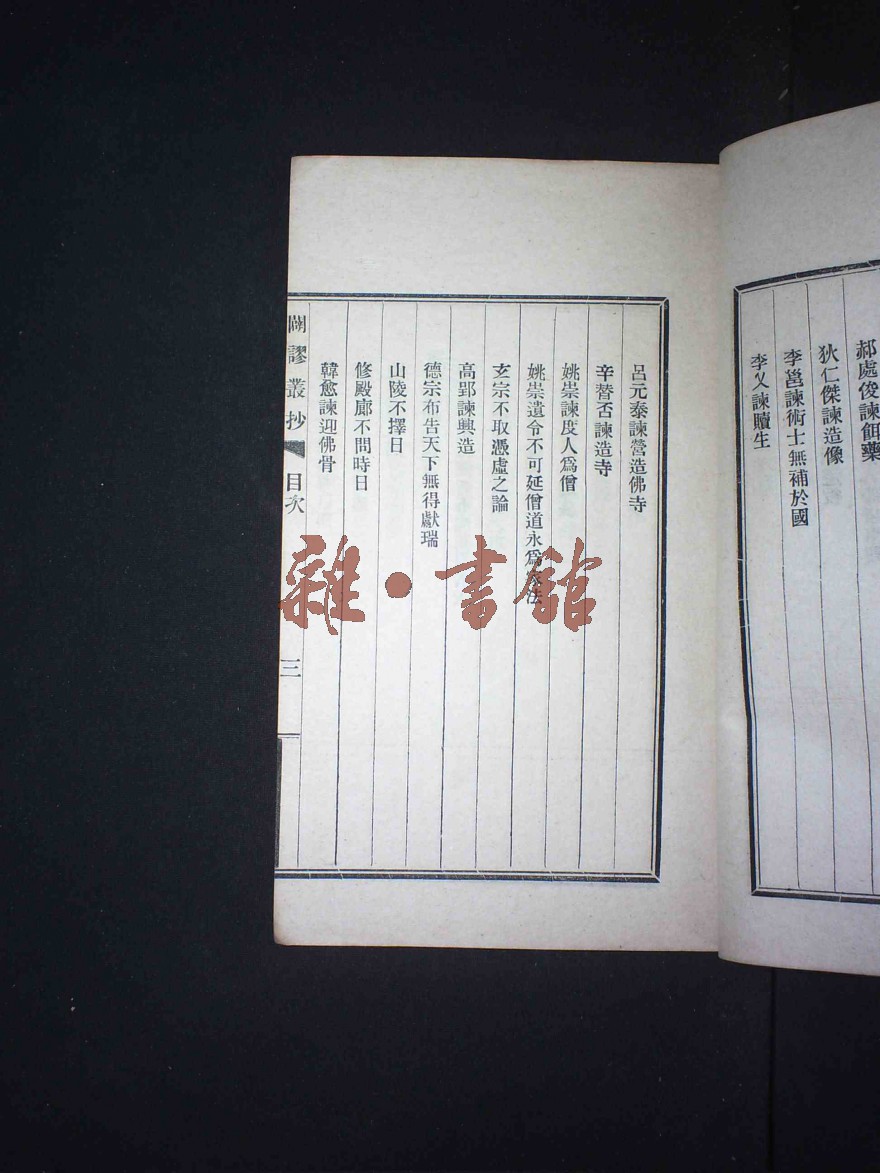 郝處俊諫餌藥
狄仁傑諫造像
李邕諫術士無補於國
李乂諫贖生
呂元泰諫營造佛寺
辛替否諫造寺
姚崇諫度人爲僧
姚崇遺令不可延僧道永爲家法
玄宗不取憑虛之論
高郢諫興造
德宗布告天下無得獻瑞
山陵不擇日
修殿廊不問時日
韓愈諫迎佛骨
謬叢抄 目次 三
雜·書館